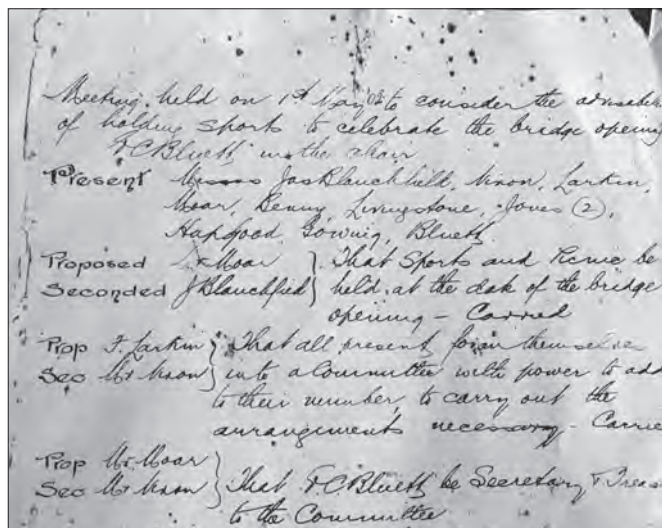 Meeting held on 1st May 02 to consider the
of holding sports to celebrate the bridge opening
F C Bluett in the chair
Present Messrs Jas Blanchfield, Nixon, Larkin,
Moar, Benny, Livingstone, Jones (2),
Hapgood, Bluett
Proposed Mr Moar } That Sports and Picnic be
Seconded J Blanchfield } held at the date of the bridge
opening - Carried
Prop F. Larkin } That all present form themselves
Sec Mr Nixon } into a Committee with power to add
to their number, to carry out the
arrangements necessary - Carrie
Prop Mr Moar
Sec Mr Nixon } That F C Bluett be Secretary & Treas
to the Committee